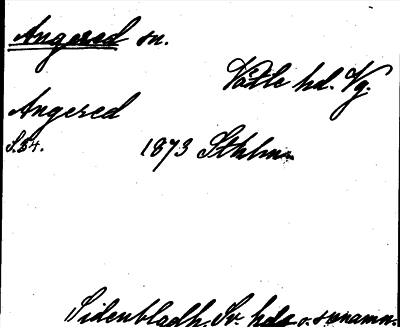 Angered sn.
Vättle hd. Vg.
Angered
S.54. 1873 Sthlm
Sidenbladh, Sv. hds o. sucknamn.